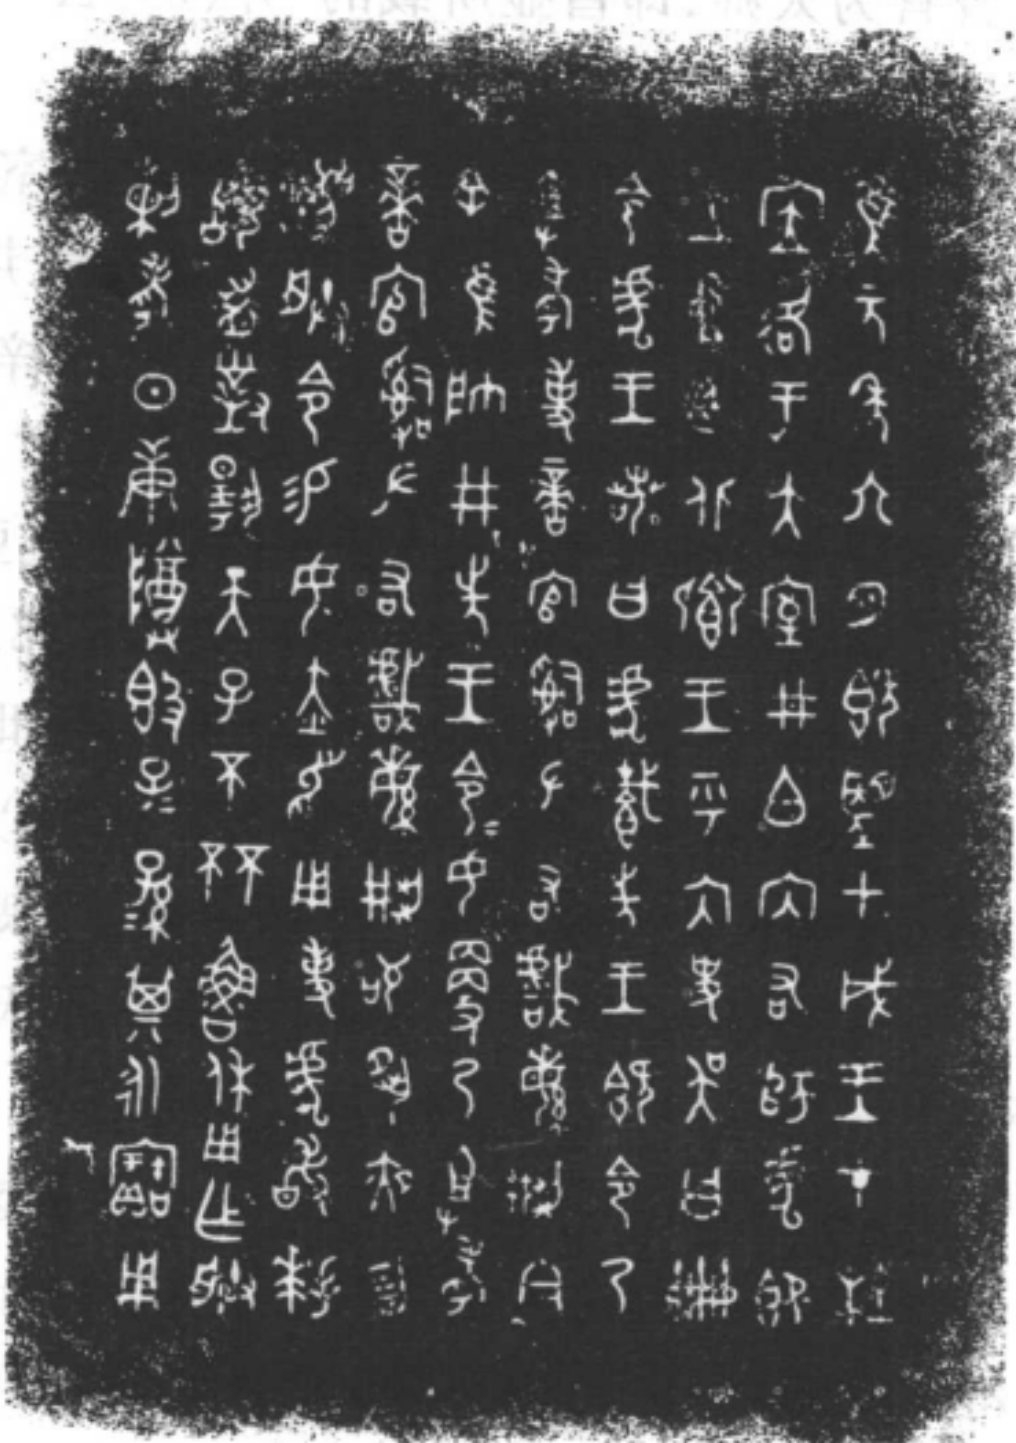 隹元年六月既望甲戌王才杜
㡴各于大室井白內右師虎即
立中廷北鄉王乎內史吳曰冊
令虎王若曰虎𩛥先王既令乃
且考事啻官𤔲左右戲緐荊今
余隹帥井先王令=女更乃且考
啻官𤔲左右戲緐荊苟夙夜勿
灋朕令易女赤舄用事虎敢拜
𩒨首對揚天子不𠀠魯休用乍朕
剌考日庚尊簋子=孫=其永寶用